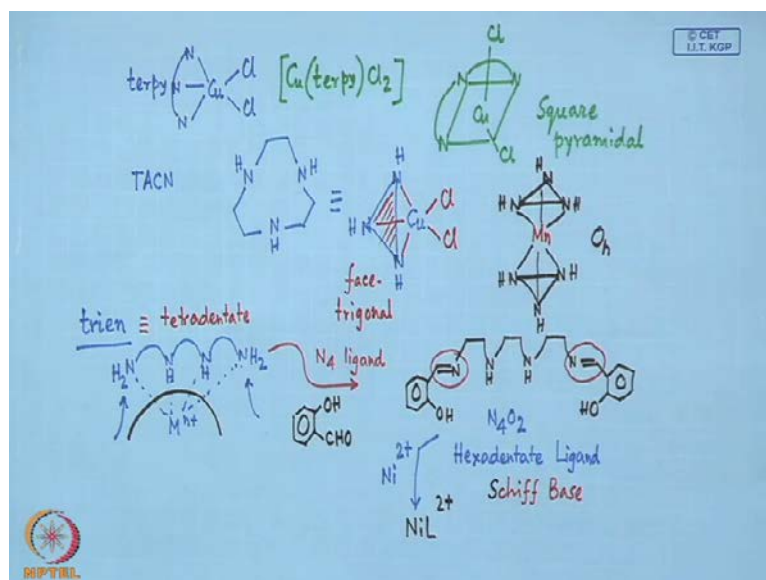 © CET
I.I.T. KGP
terpy N N N Cu Cl Cl
[Cu(terpy)Cl2]
Cl N N N Cu Cl
Square pyramidal
TACN
H N N H N H
≡
H N H N N H Cu Cl Cl
face-trigonal
H N H N N H
Mn
H N N H N H
Oh
trien ≡ tetradentate
H2N N H N H NH2
M n+
N4 ligand
OH
CHO
N N H N H N
OH HO
N4O2
Hexadentate Ligand
Schiff Base
Ni 2+
NiL 2+
NPTEL